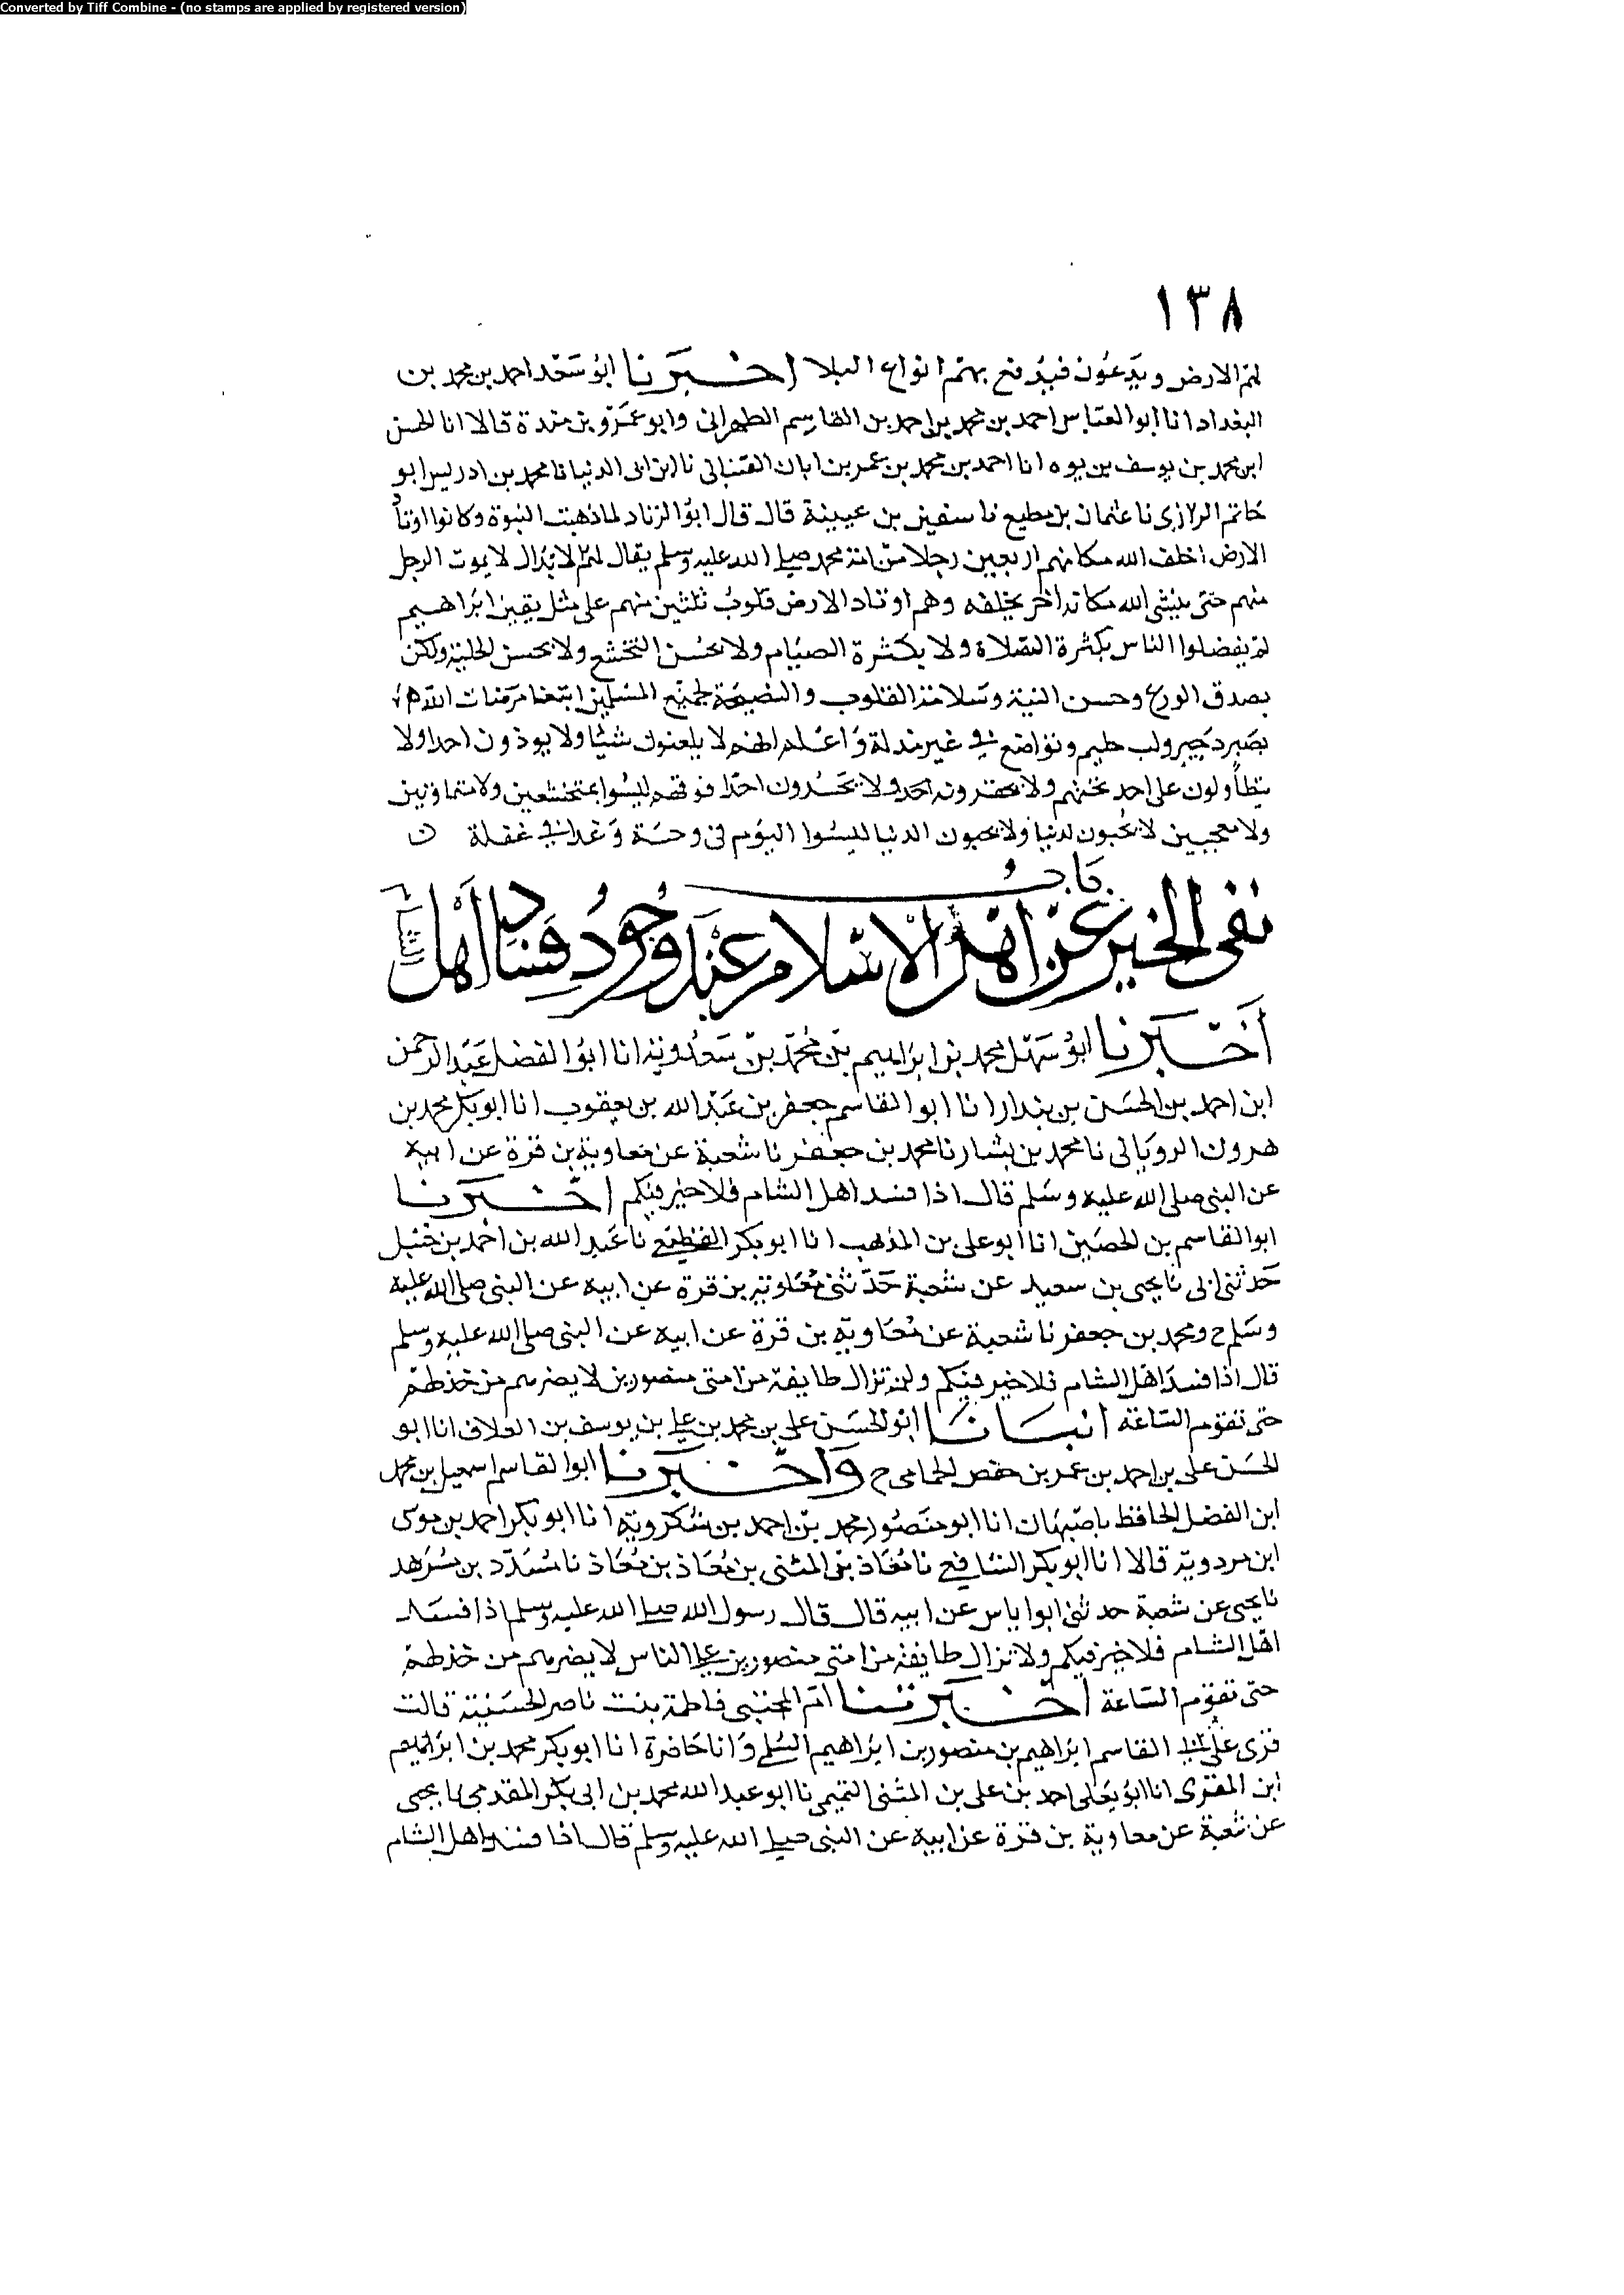 Converted by Tiff Combine - (no stamps are applied by registered version)
١٣٨
لهم الارض ويدعون فيدفع بهم انواع البلا اخبرنا ابو سعد احمد بن محمد بن
البغدادانا ابو العباس احمد بن محمد بن احمد بن القاسم الطهراني وابو عمرو بن مندة قالا انا الحسن
ابن محمد بن يوسف بن يوه انا احمد بن محمد بن عمر بن ابان العبناني نا ابن ابي الدنيا نا محمد بن ادريس ابو
حاتم الرازي نا عثمان بن مطيع نا سفين بن عيينة قال قال ابو الزناد لما ذهبت النبوة وكانوا اوتاد
الارض اخلف الله مكانهم اربعين رجلا من امة محمد صلى الله عليه وسلم يقال لهم الابدال لا يموت الرجل
منهم حتى ينشي الله مكانه اخر يخلفه وهم اوتاد الارض قلوب ثلثين منهم على مثل يقين ابراهيم
لم يفضلوا الناس بكثرة الصلاة ولا بكثرة الصيام ولا بحسن التخشع ولا بحسن الحلية ولكن
بصدق الورع وحسن النية وسلامة القلوب والنصيحة لجميع المسلمين ابتغا مرضات الله
بصبر ولب حليم وتواضع في غير مذلة واعلم انهم لا يلعنون شيئا ولا يوذون احدا ولا
يتطاولون على احد تحتهم ولا يحقرونه ولا يحسدون احدا فوقهم ليسوا بمتخشعين ولا متماوتين
ولا معجبين لا يحبون لدنيا ولا يحبون الدنيا ليسوا اليوم في وحشة وغدا في غفلة
باب
نفي الخير عن اهل الاسلام عند وجود فساد اهل الشام
اخبرنا ابو سهل محمد بن ابراهيم بن محمد بن سعدويه انا ابو الفضل عبد الرحمن
ابن احمد بن الحسن بن بندار انا ابو القاسم جعفر بن عبد الله بن يعقوب انا ابو بكر محمد بن
هرون الروياني نا محمد بن بشار نا محمد بن جعفر نا شعبة عن معاوية بن قرة عن ابيه
عن النبي صلى الله عليه وسلم قال اذا فسد اهل الشام فلا خير فيكم اخبرنا
ابو القاسم بن الحصين انا ابو علي بن المذهب انا ابو بكر القطيعي نا عبد الله بن احمد بن حنبل
حدثني ابي نا يحيى بن سعيد عن شعبة حدثني معاوية بن قرة عن ابيه عن النبي صلى الله عليه
وسلم ح ومحمد بن جعفر نا شعبة عن معاوية بن قرة عن ابيه عن النبي صلى الله عليه وسلم
قال اذا فسد اهل الشام فلا خير فيكم ولن تزال طايفة من امتي منصورين لا يضرهم من خذلهم
حتى تقوم الساعة انبانا ابو الحسن علي بن محمد بن علي بن يوسف بن العلاف انا ابو
الحسن علي بن احمد بن عمر بن حفص الحمامي ح واخبرنا ابو القاسم اسمعيل بن محمد
ابن الفضل الحافظ باصبهان انا ابو منصور محمد بن احمد بن شكرويه انا ابو بكر احمد بن موسى
ابن مردويه قالا انا ابو بكر الشافعي نا معاذ بن المثنى بن معاذ بن معاذ نا مسدد بن مسرهد
نا يحيى عن شعبة حدثني ابو اياس عن ابيه قال قال رسول الله صلى الله عليه وسلم اذا فسد
اهل الشام فلا خير فيكم ولا تزال طايفة من امتي منصورين على الناس لا يضرهم من خذلهم
حتى تقوم الساعة اخبرتنا ام المجتبى فاطمة بنت ناصر الحسنية قالت
قرى على القاسم ابراهيم بن منصور بن ابراهيم السلمي وانا حاضرة انا ابو بكر محمد بن ابراهيم
ابن المقرى انا ابو يعلى احمد بن علي بن المثنى التميمي نا ابو عبد الله محمد بن ابي بكر المقدمي نا يحيى
عن شعبة عن معاوية بن قرة عن ابيه عن النبي صلى الله عليه وسلم قال اذا فسد اهل الشام